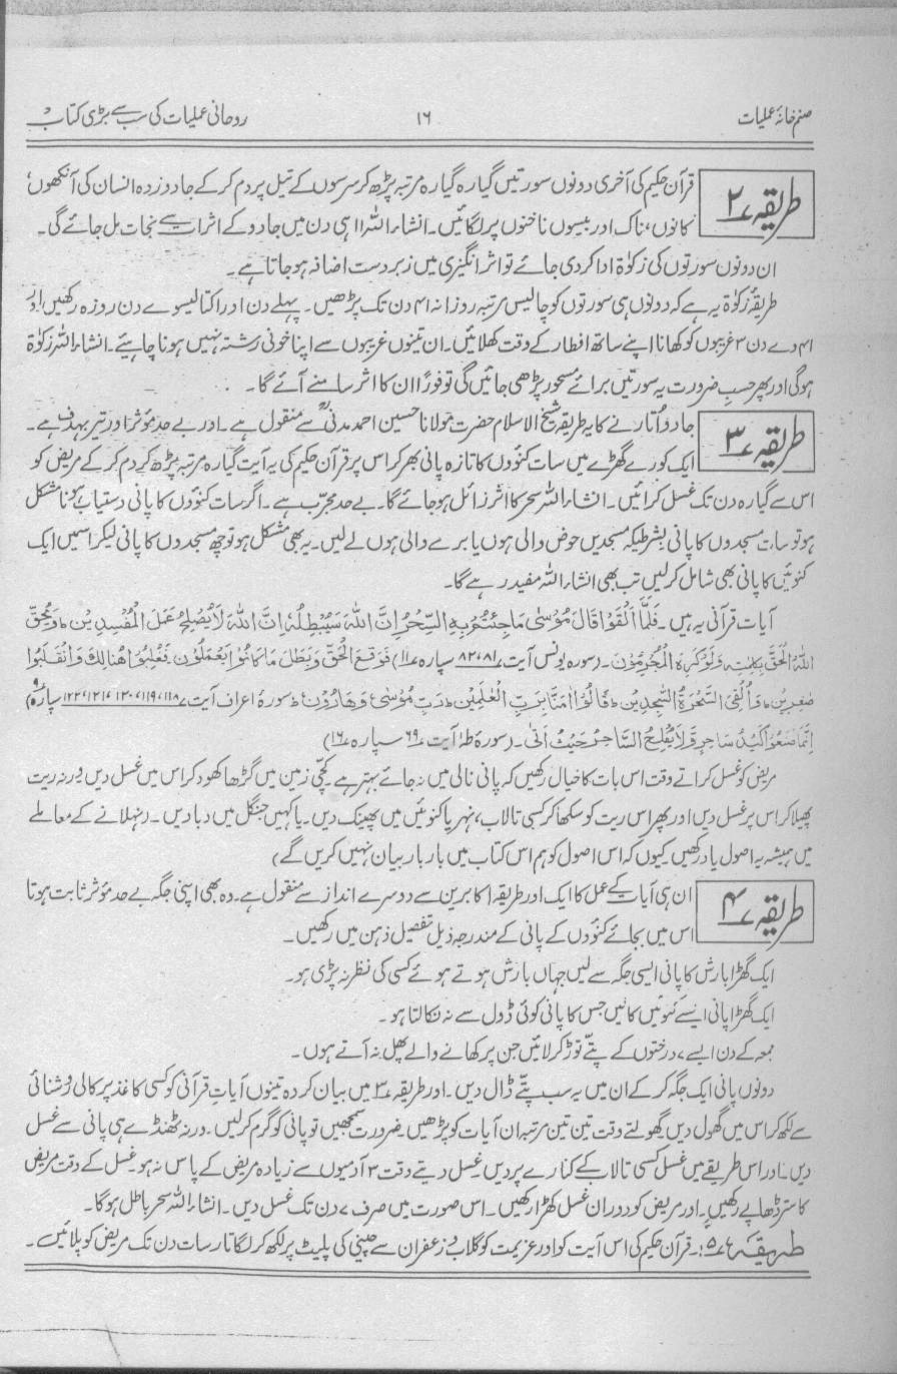 صنم خانۂ عملیات ۱۶ روحانی عملیات کی سب سے بڑی کتاب
طریقہ ۲ قرآن حکیم کی آخری دونوں سورتیں گیارہ گیارہ مرتبہ پڑھ کر سرسوں کے تیل پر دم کر کے جادو زدہ انسان کی آنکھوں،
کانوں، ناک اور بیسوں ناخنوں پر لگائیں۔ انشاء اللہ ۱۱ ہی دن میں جادو کے اثرات سے نجات مل جائے گی۔
ان دونوں سورتوں کی زکوٰۃ ادا کردی جائے تو اثر انگیزی میں زبردست اضافہ ہوجاتا ہے۔
طریقۂ زکوٰۃ یہ ہے کہ دونوں ہی سورتوں کو چالیس مرتبہ روزانہ ۴۱ دن تک پڑھیں۔ پہلے دن اور اکتالیسوے دن روزہ رکھیں اور
۴۱ وے دن ۳ غریبوں کو کھانا اپنے ساتھ افطار کے وقت کھلائیں۔ ان تینوں غریبوں سے اپنا خونی رشتہ نہیں ہونا چاہیے۔ انشاء اللہ زکوٰۃ
ہوگی اور پھر حسبِ ضرورت یہ سورتیں برائے مسحور پڑھی جائیں گی تو فوراً ان کا اثر سامنے آئے گا۔
طریقہ ۳ جادو اُتارنے کا یہ طریقہ شیخ الاسلام حضرت مولانا حسین احمد مدنیؒ سے منقول ہے۔ اور بے حد مؤثر اور تیر بہدف ہے۔
ایک کورے گھڑے میں سات کنوؤں کا تازہ پانی بھر کر اس پر قرآن حکیم کی یہ آیت گیارہ مرتبہ پڑھ کر دم کر کے مریض کو
اس سے گیارہ دن تک غسل کرائیں۔ انشاء اللہ سحر کا اثر زائل ہوجائے گا۔ بے حد مجرّب ہے۔ اگر سات کنوؤں کا پانی دستیاب ہونا مشکل
ہو تو سات مسجدوں کا پانی بشرطیکہ مسجدیں حوض والی ہوں یا برے والی ہوں لے لیں۔ یہ بھی مشکل ہو تو چھ مسجدوں کا پانی لیکر اسمیں ایک
کنوئیں کا پانی بھی شامل کرلیں تب بھی انشاء اللہ مفید رہے گا۔
آیات قرآنی یہ ہیں۔ فَلَمَّا اَلْقَوْا قَالَ مُوْسٰی مَاجِئْتُمْ بِهِ السِّحْرُ اِنَّ اللّٰهَ سَيُبْطِلُهٗ اِنَّ اللّٰهَ لَا يُصْلِحُ عَمَلَ الْمُفْسِدِيْنَ۔ وَيُحِقُّ
اللّٰهُ الْحَقَّ بِكَلِمٰتِهٖ وَلَوْ كَرِهَ الْمُجْرِمُوْنَ۔ (سورہ یونس آیت ۸۱، ۸۲ سپارہ ۱۱) فَوَقَعَ الْحَقُّ وَبَطَلَ مَا كَانُوْا يَعْمَلُوْنَ۔ فَغُلِبُوْا هُنَالِكَ وَانْقَلَبُوْا
صٰغِرِيْنَ۔ وَاُلْقِیَ السَّحَرَةُ السّٰجِدِيْنَ۔ قَالُوْا اٰمَنَّا بِرَبِّ الْعٰلَمِيْنَ۔ رَبِّ مُوْسٰی وَهَارُوْنَ۔ (سورہ اعراف آیت ۱۱۸، ۱۱۹، ۱۲۰، ۱۲۱، ۱۲۲ سپارہ ۹)
اِنَّمَا صَنَعُوْا كَيْدُ سَاحِرٍ وَّلَا يُفْلِحُ السَّاحِرُ حَيْثُ اَتٰی۔ (سورہ طٰہٰ آیت ۶۹ سپارہ ۱۶)
مریض کو غسل کراتے وقت اس بات کا خیال رکھیں کہ پانی نالی میں نہ جائے بہتر ہے کچّی زمین میں گڑھا کھود کر اس میں غسل دیں ورنہ ریت
پھیلا کر اس پر غسل دیں اور پھر اس ریت کو سکھا کر کسی تالاب، نہر یا کنوئیں میں پھینک دیں۔ یا کہیں جنگل میں دبا دیں۔ (نہلانے کے معاملے
میں ہمیشہ یہ اصول یاد رکھیں کیوں کہ اس اصول کو ہم اس کتاب میں بار بار بیان نہیں کریں گے)
طریقہ ۴ ان ہی آیات کے عمل کا ایک اور طریقہ اکابرین سے دوسرے انداز سے منقول ہے۔ وہ بھی اپنی جگہ بے حد مؤثر ثابت ہوتا
اس میں بجائے کنوؤں کے پانی کے مندرجہ ذیل تفصیل ذہن میں رکھیں۔
ایک گھڑا بارش کا پانی ایسی جگہ سے لیں جہاں بارش ہوتے ہوئے کسی کی نظر نہ پڑی ہو۔
ایک گھڑا پانی ایسے کنوئیں کا لیں جس کا پانی کوئی ڈول سے نہ نکالتا ہو۔
جمعہ کے دن ایسے ۷ درختوں کے پتّے توڑ کر لائیں جن پر کھانے والے پھل نہ آتے ہوں۔
دونوں پانی ایک جگہ کر کے ان میں یہ سب پتّے ڈال دیں۔ اور طریقہ ۳ میں بیان کردہ تینوں آیاتِ قرآنی کو کسی کاغذ پر کالی روشنائی
سے لکھ کر اس میں گھول دیں گھولتے وقت تین تین مرتبہ ان آیات کو پڑھیں۔ ضرورت سمجھیں تو پانی کو گرم کرلیں۔ ورنہ ٹھنڈے ہی پانی سے غسل
دیں۔ اور اس طریقے میں غسل کسی تالاب کے کنارے پر دیں۔ غسل دیتے وقت ۳ آدمیوں سے زیادہ مریض کے پاس نہ ہو۔ غسل کے وقت مریض
کا ستر ڈھاپے رکھیں۔ اور مریض کو دوران غسل کھڑا رکھیں۔ اس صورت میں صرف ۷ دن تک غسل دیں۔ انشاء اللہ سحر باطل ہوگا۔
طریقہ ۵:۔ قرآن حکیم کی اس آیت کو اور عزیمت کو گلاب و زعفران سے چینی کی پلیٹ پر لکھ کر لگاتار سات دن تک مریض کو پلائیں۔